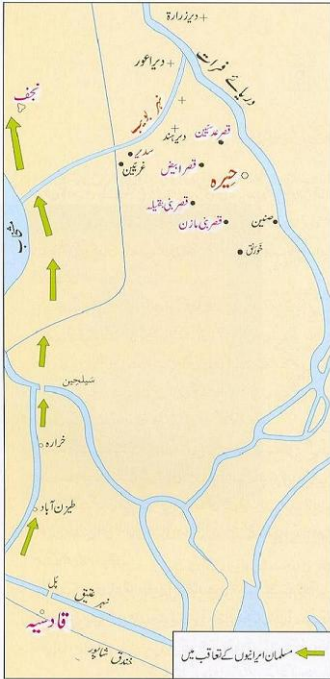 دیرزرارۃ
دریائے فرات
دیراعور
نجف
نہر بویب
دیرہند
قصرعدیسین
سدیر
غریین
قصرابیض
حیرہ
قصربنی بقیلہ
قصربنی مازن
صنین
خورنق
سیلحین
خرارہ
طیزن آباد
پل
نہر عتیق
قادسیہ
خندق شاپور
مسلمان ایرانیوں کے تعاقب میں